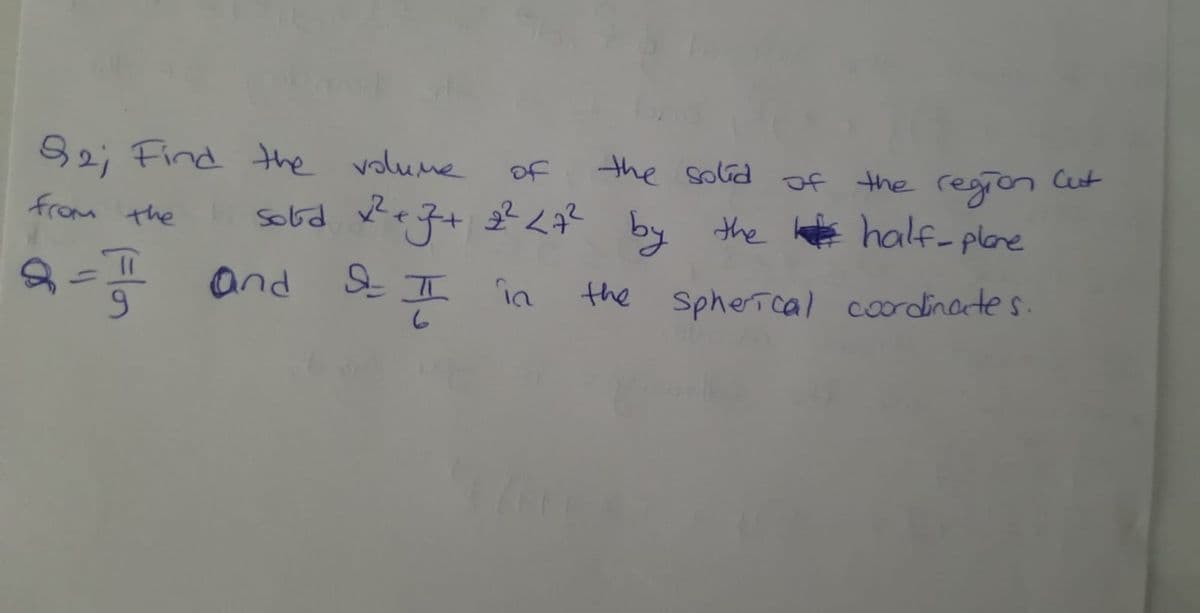 Q2; Find the volume of the solid of the region cut
from the solid x²+y²+z²<7² by the half-plane
θ=π/9 and θ=π/6 in the spherical coordinates.